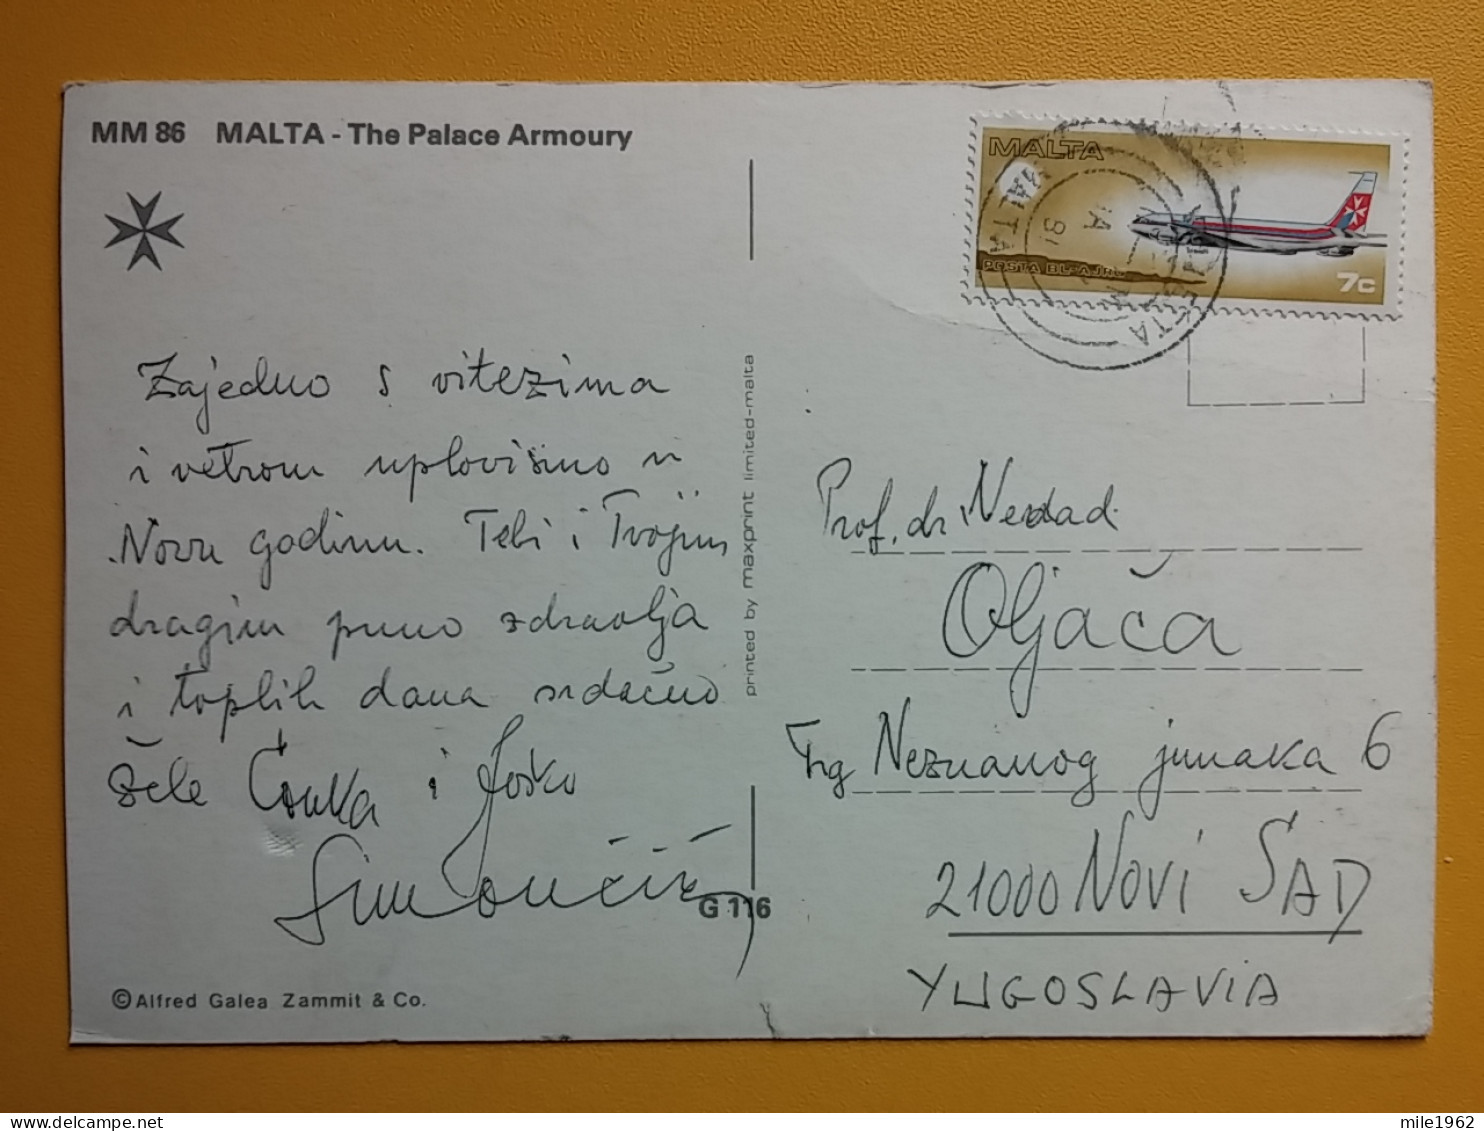 MM 86 MALTA - The Palace Armoury
Zajedno s vitezima
i vetrom uplovismo u
Novu godinu. Tebi i Tvojim
dragim puno zdravlja
i toplih dana srdačno
žele Čonka i Joško
Simončić
G 116
©Alfred Galea Zammit & Co.
printed by maxprint limited-malta
MALTA
POSTA BL-AJRU
7c
MALTA
Prof. dr. Nenad
Oljača
Trg Neznanog junaka 6
21000 NOVI SAD
YUGOSLAVIA
mile1962